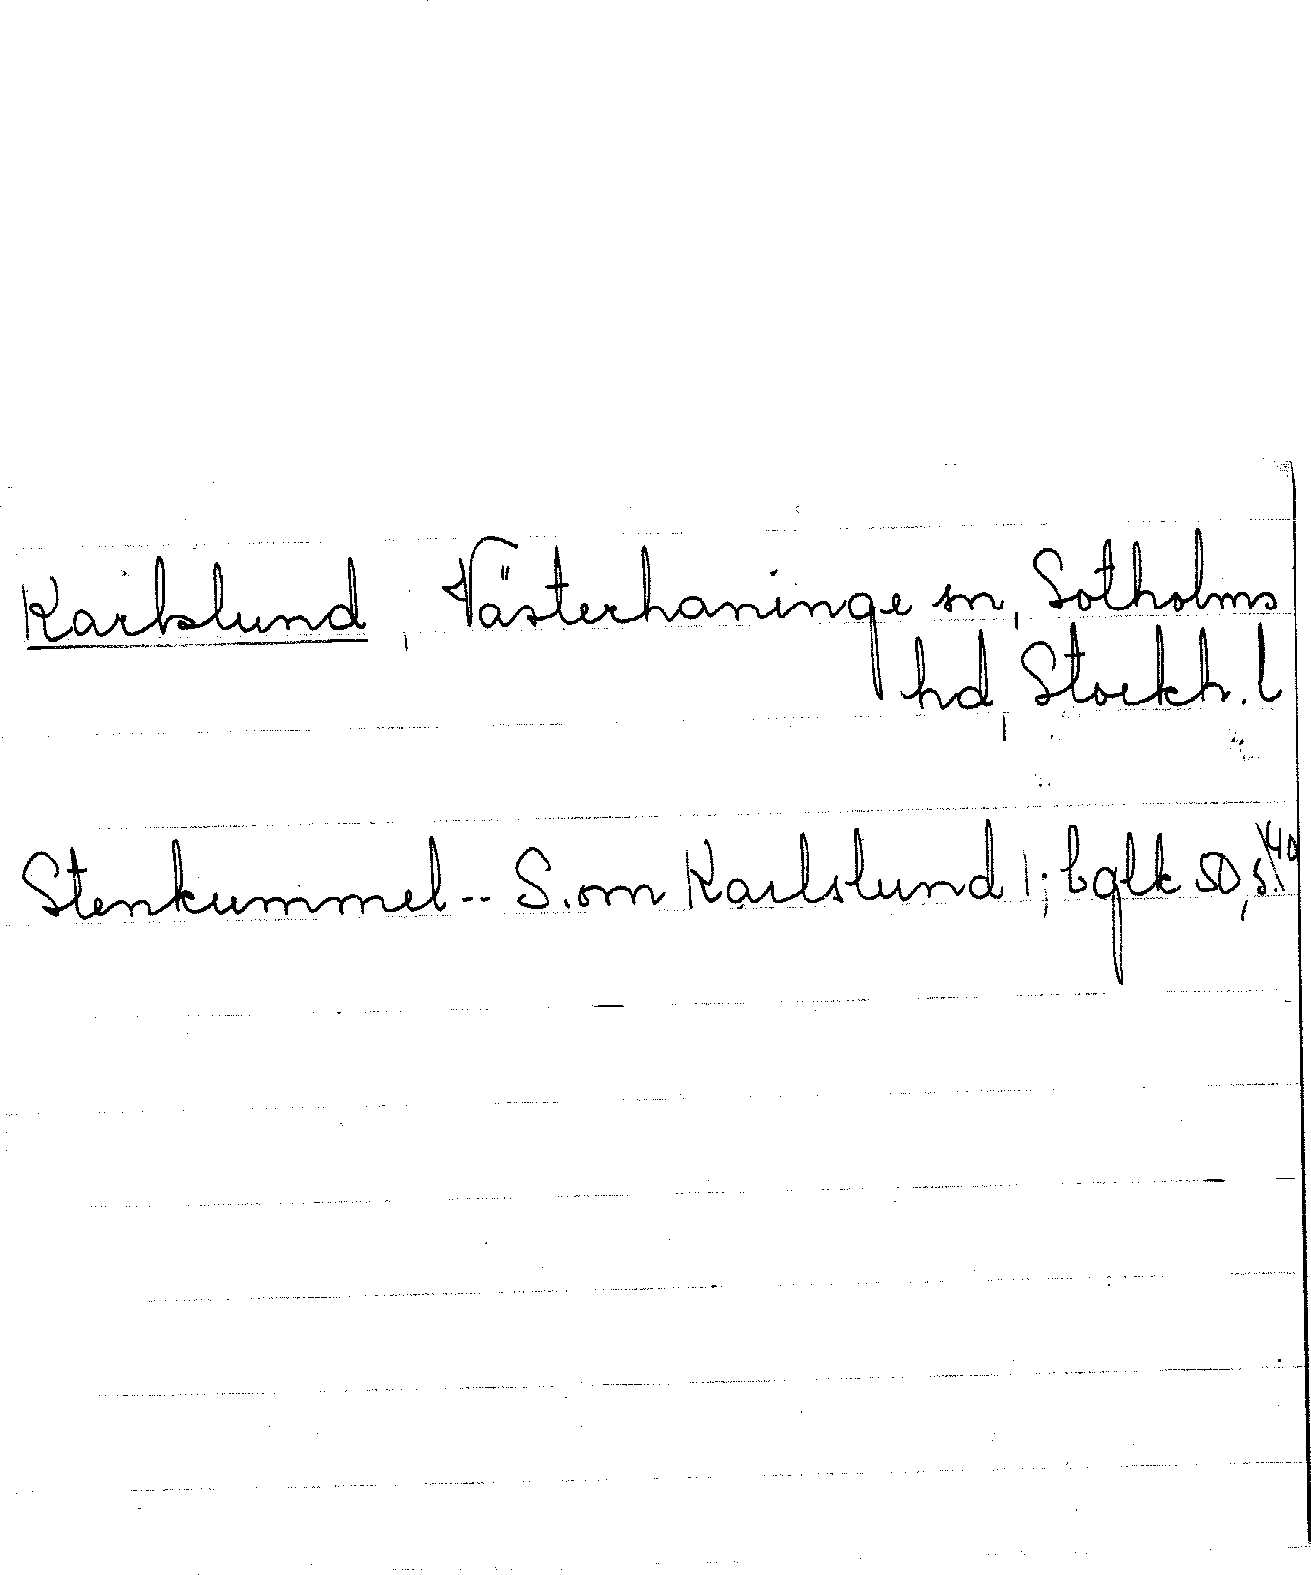 Karlslund, Västerhaninge sn, Sotholms
hd, Stockh. l
Stenkummel -- S. om Karlslund 1; bglk SO, s. 40